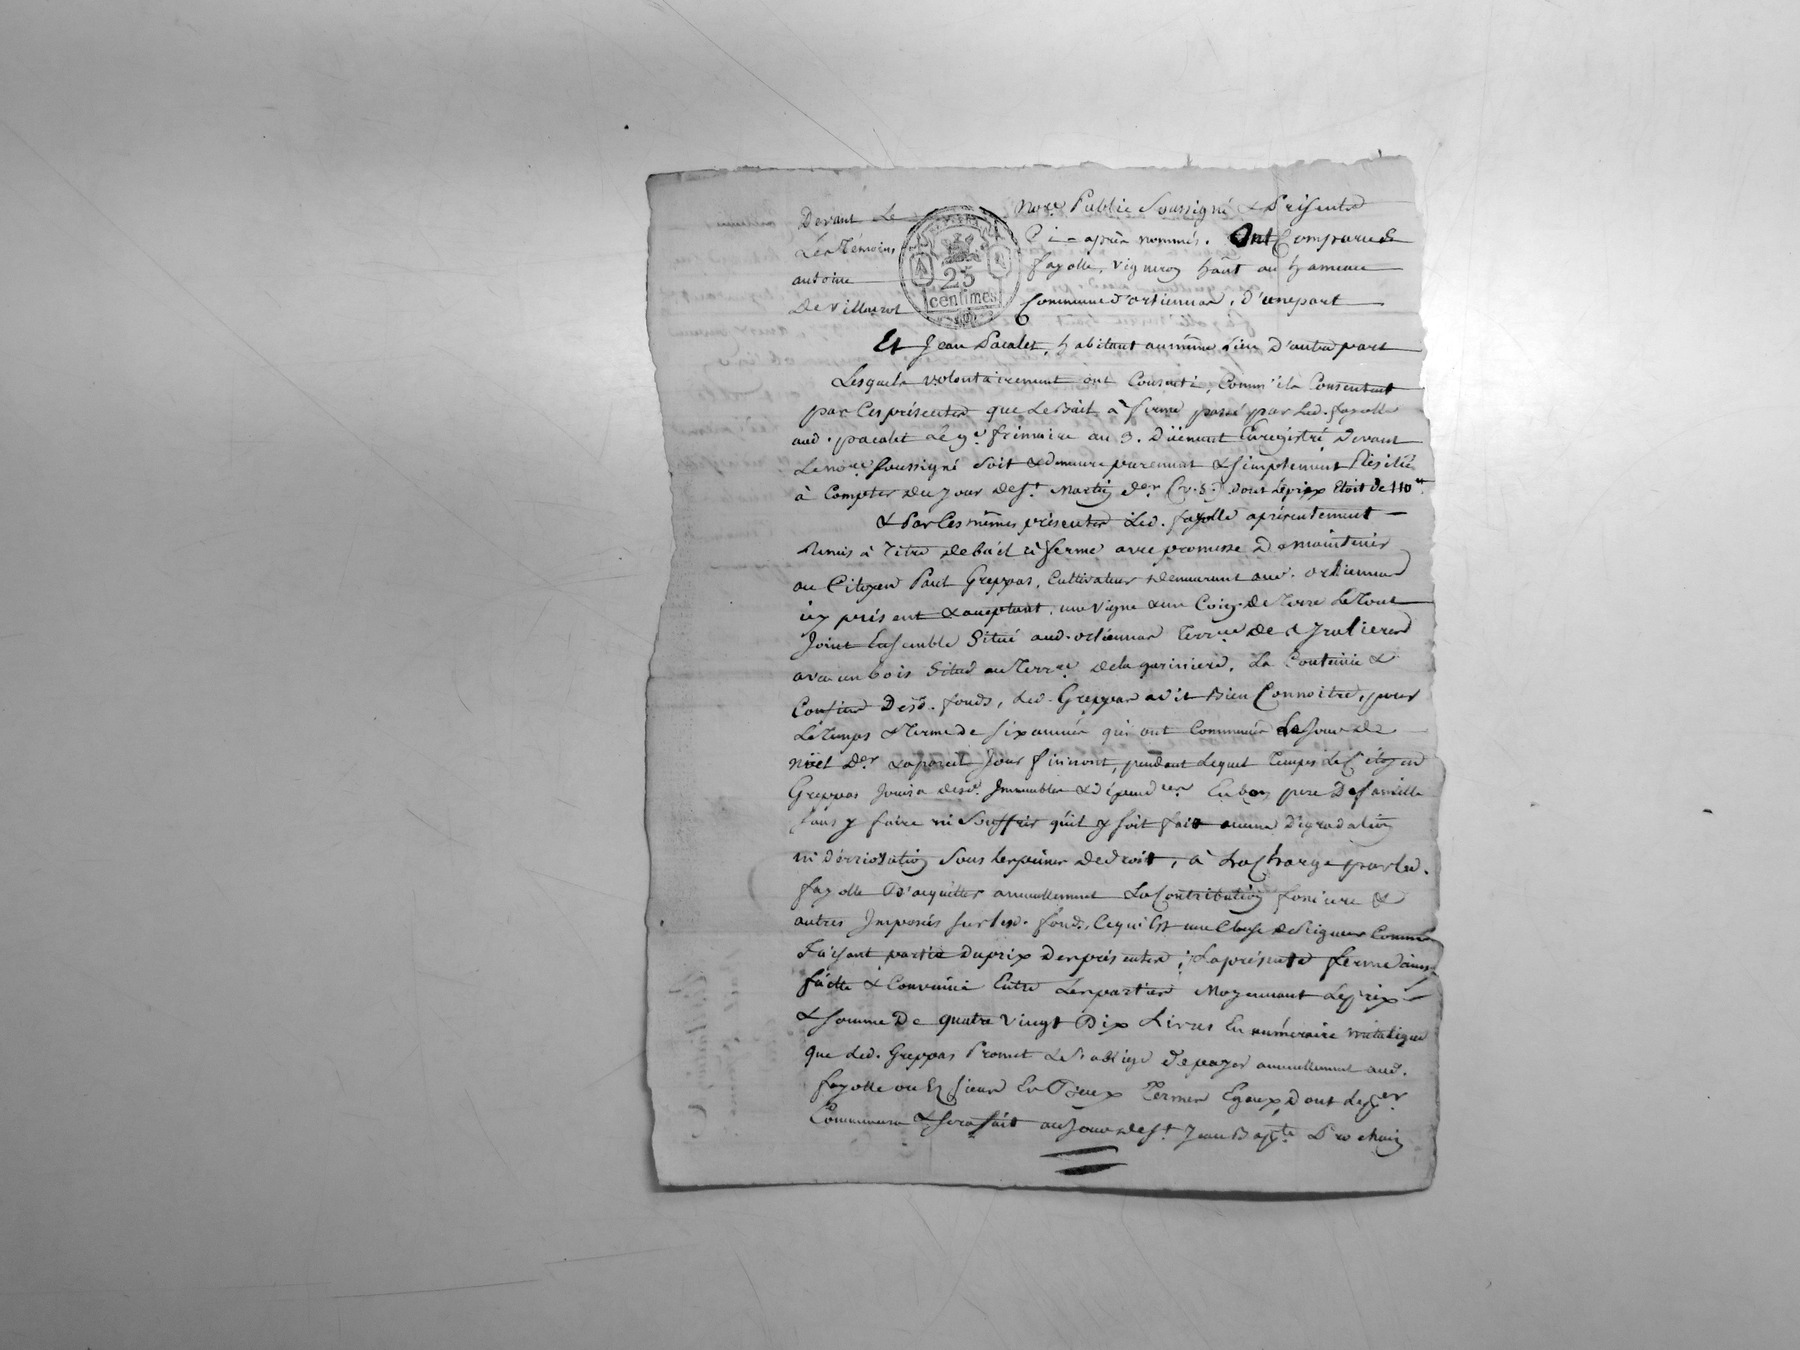 Devant Le nore. Public Soussigné & Présents
Les Témoins Ci-après nommés. Ont Comparu
antoine fayolle, vigneron hânt au hameau
De villuerol Commune d'ortiennas, d'une part
25
centimes
Et Jean Pacalet, habitant au même Lieu D'autre part
Lesquels volontairement ont Consenti, Comm'ils Consentent
par Ces présentes que Le Bail à ferme passé par Led. fayolle
aud. pacalet Le 9e. frimaire an 3. Düement Enregistré Devant
Le nore. soussigné soit & demeure purement & simplement Résilié
à Compter du jour de st. Martin der. (v.s.) dont Le prix Etoit de 110tt.
& Par Ces mêmes présentes Led. fayolle a présentement
Remis à Titre de bail à ferme avec promesse De maintenir
au Citoyen Paul Greppas, Cultivateur demeurant aud. ortiennas
icy présent & acceptant, une vigne & un Coing de Terre Le Tout
Joint Ensemble Situé aud. ortiennas Terre. de
avec un bois Situé au Terre. de la gariniere, La Contenue &
Confins Desd. fonds, Led. Greppas a dit Bien Connoitre, pour
Le Temps & Terme de six années qui ont Commencé Le Jour de
noël Der. & a pareil Jour finiront, pendant Lequel Temps Le Citoyen
Greppas Jouira desd. Immeubles & dépendces. En bon pere De famille
sans y faire ni Souffrir qu'il y soit fait aucune Dégradation
ni Déiriotation Sous Les peines de droit, à La Charge par Led.
fayolle D'acquitter annuellement La Contribution fonciere &
autres Imposés sur Lesd. fonds, Ce qui Est une Clause de Rigueur Comme
Faisant partie Du prix Des présentes; La présente ferme ainsy
faitte & Convenüe Entre Les parties Moyennant Le prix
& somme De quatre vingt Dix Livres En numéraire métalique
que Led. Greppas Promet & S'oblige De payer annuellement aud.
fayolle ou Es siens En Deux Termes Egaux, Dont Le 1er.
Commencera & sera fait au Jour de st. Jean Bapte. Prochain